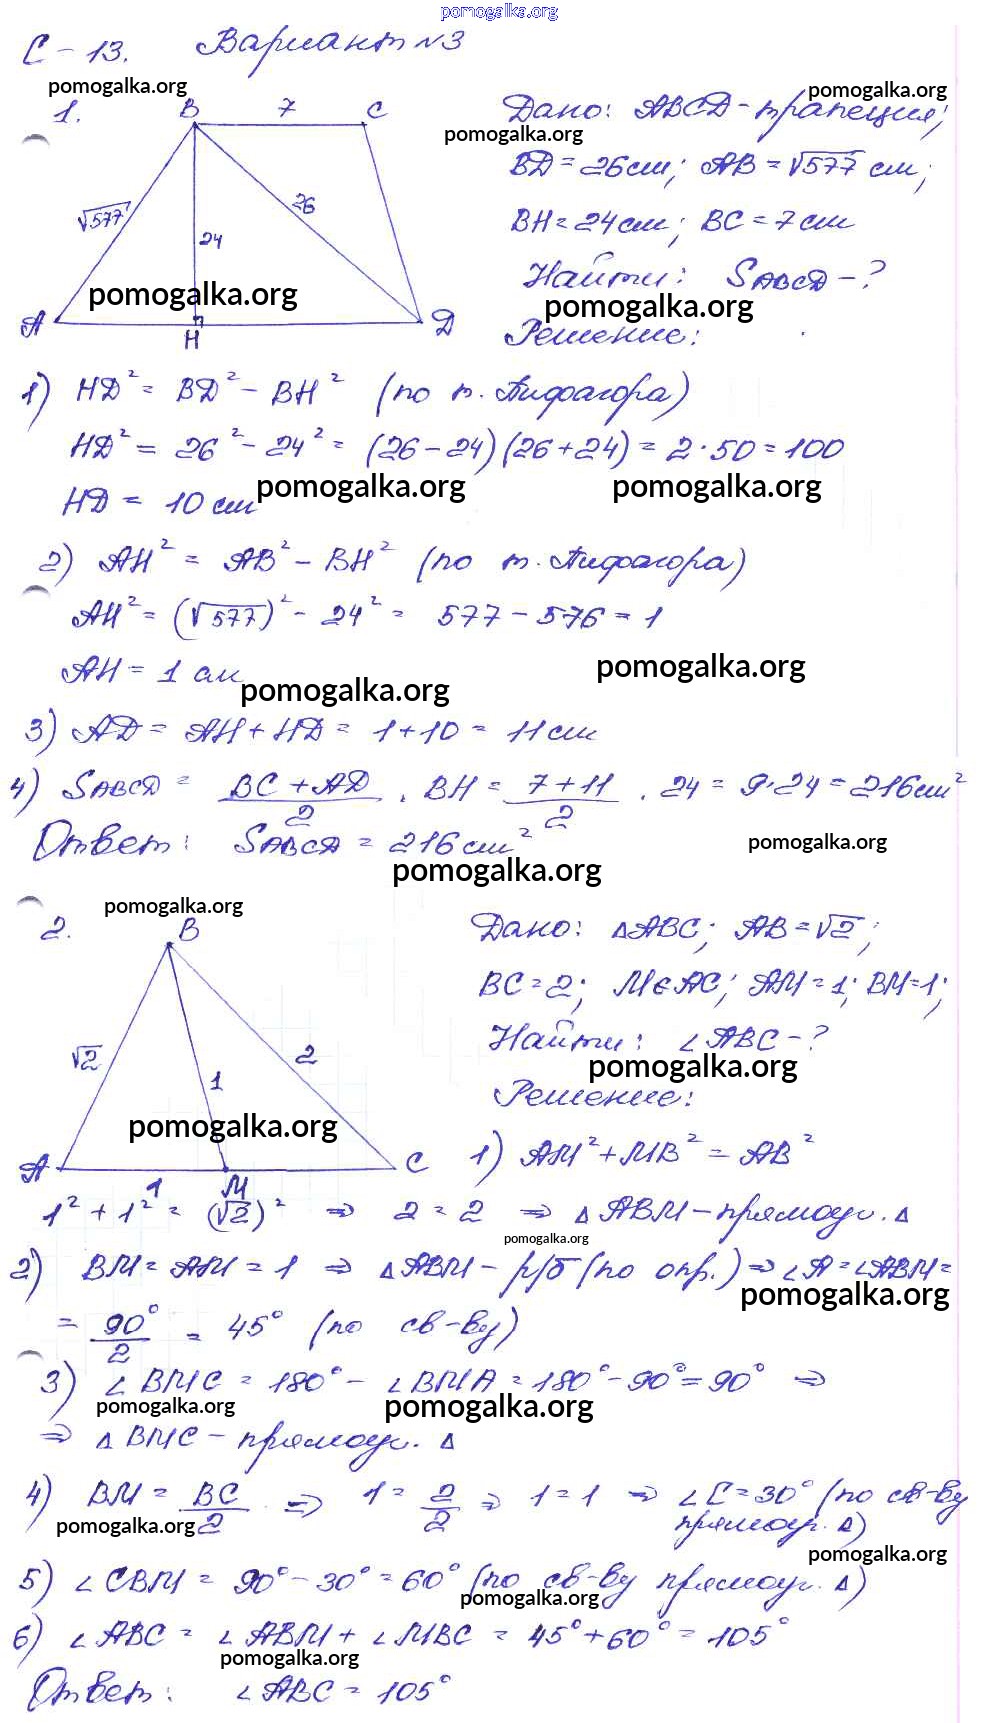 pomogalka.org
С-13. Вариант №3
pomogalka.org
pomogalka.org
1.
B 7 C
Дано: ABCD-трапеция;
pomogalka.org
BD=26см; AB=√577 см;
√577
26
24
BH=24см; BC=7см
Найти: SABCD-?
pomogalka.org
pomogalka.org
A H D
Решение:
1) HD² = BD² - BH² (по т. Пифагора)
HD² = 26² - 24² = (26-24)(26+24) = 2·50=100
HD = 10см
pomogalka.org pomogalka.org
2) AH² = AB² - BH² (по т. Пифагора)
AH² = (√577)² - 24² = 577-576=1
AH = 1 см
pomogalka.org
pomogalka.org
3) AD = AH+HD = 1+10 = 11см
4) SABCD = (BC+AD)/2 · BH = (7+11)/2 · 24 = 9·24=216см²
Ответ: SABCD = 216см²
pomogalka.org
pomogalka.org
pomogalka.org
2.
B
Дано: △ABC; AB=√2;
BC=2; M∈AC; AM=1; BM=1;
√2
2
1
Найти: ∠ABC-?
pomogalka.org
Решение:
pomogalka.org
A 1 M C
1) AM²+MB²=AB²
1²+1² = (√2)² ⇒ 2=2 ⇒ △ABM-прямоуг.△
pomogalka.org
2) BM=AM=1 ⇒ △ABM-р/б (по опр.) ⇒ ∠A=∠ABM=
pomogalka.org
= 90°/2 = 45° (по св-ву)
3) ∠BMC = 180° - ∠BMA = 180°-90°=90° ⇒
pomogalka.org pomogalka.org
⇒ △BMC-прямоуг. △
4) BM = BC/2 ⇒ 1 = 2/2 ⇒ 1=1 ⇒ ∠C=30° (по св-ву
прямоуг. △)
pomogalka.org
pomogalka.org
5) ∠CBM = 90°-30°=60° (по св-ву прямоуг. △)
pomogalka.org
6) ∠ABC = ∠ABM + ∠MBC = 45°+60°=105°
pomogalka.org
Ответ: ∠ABC = 105°